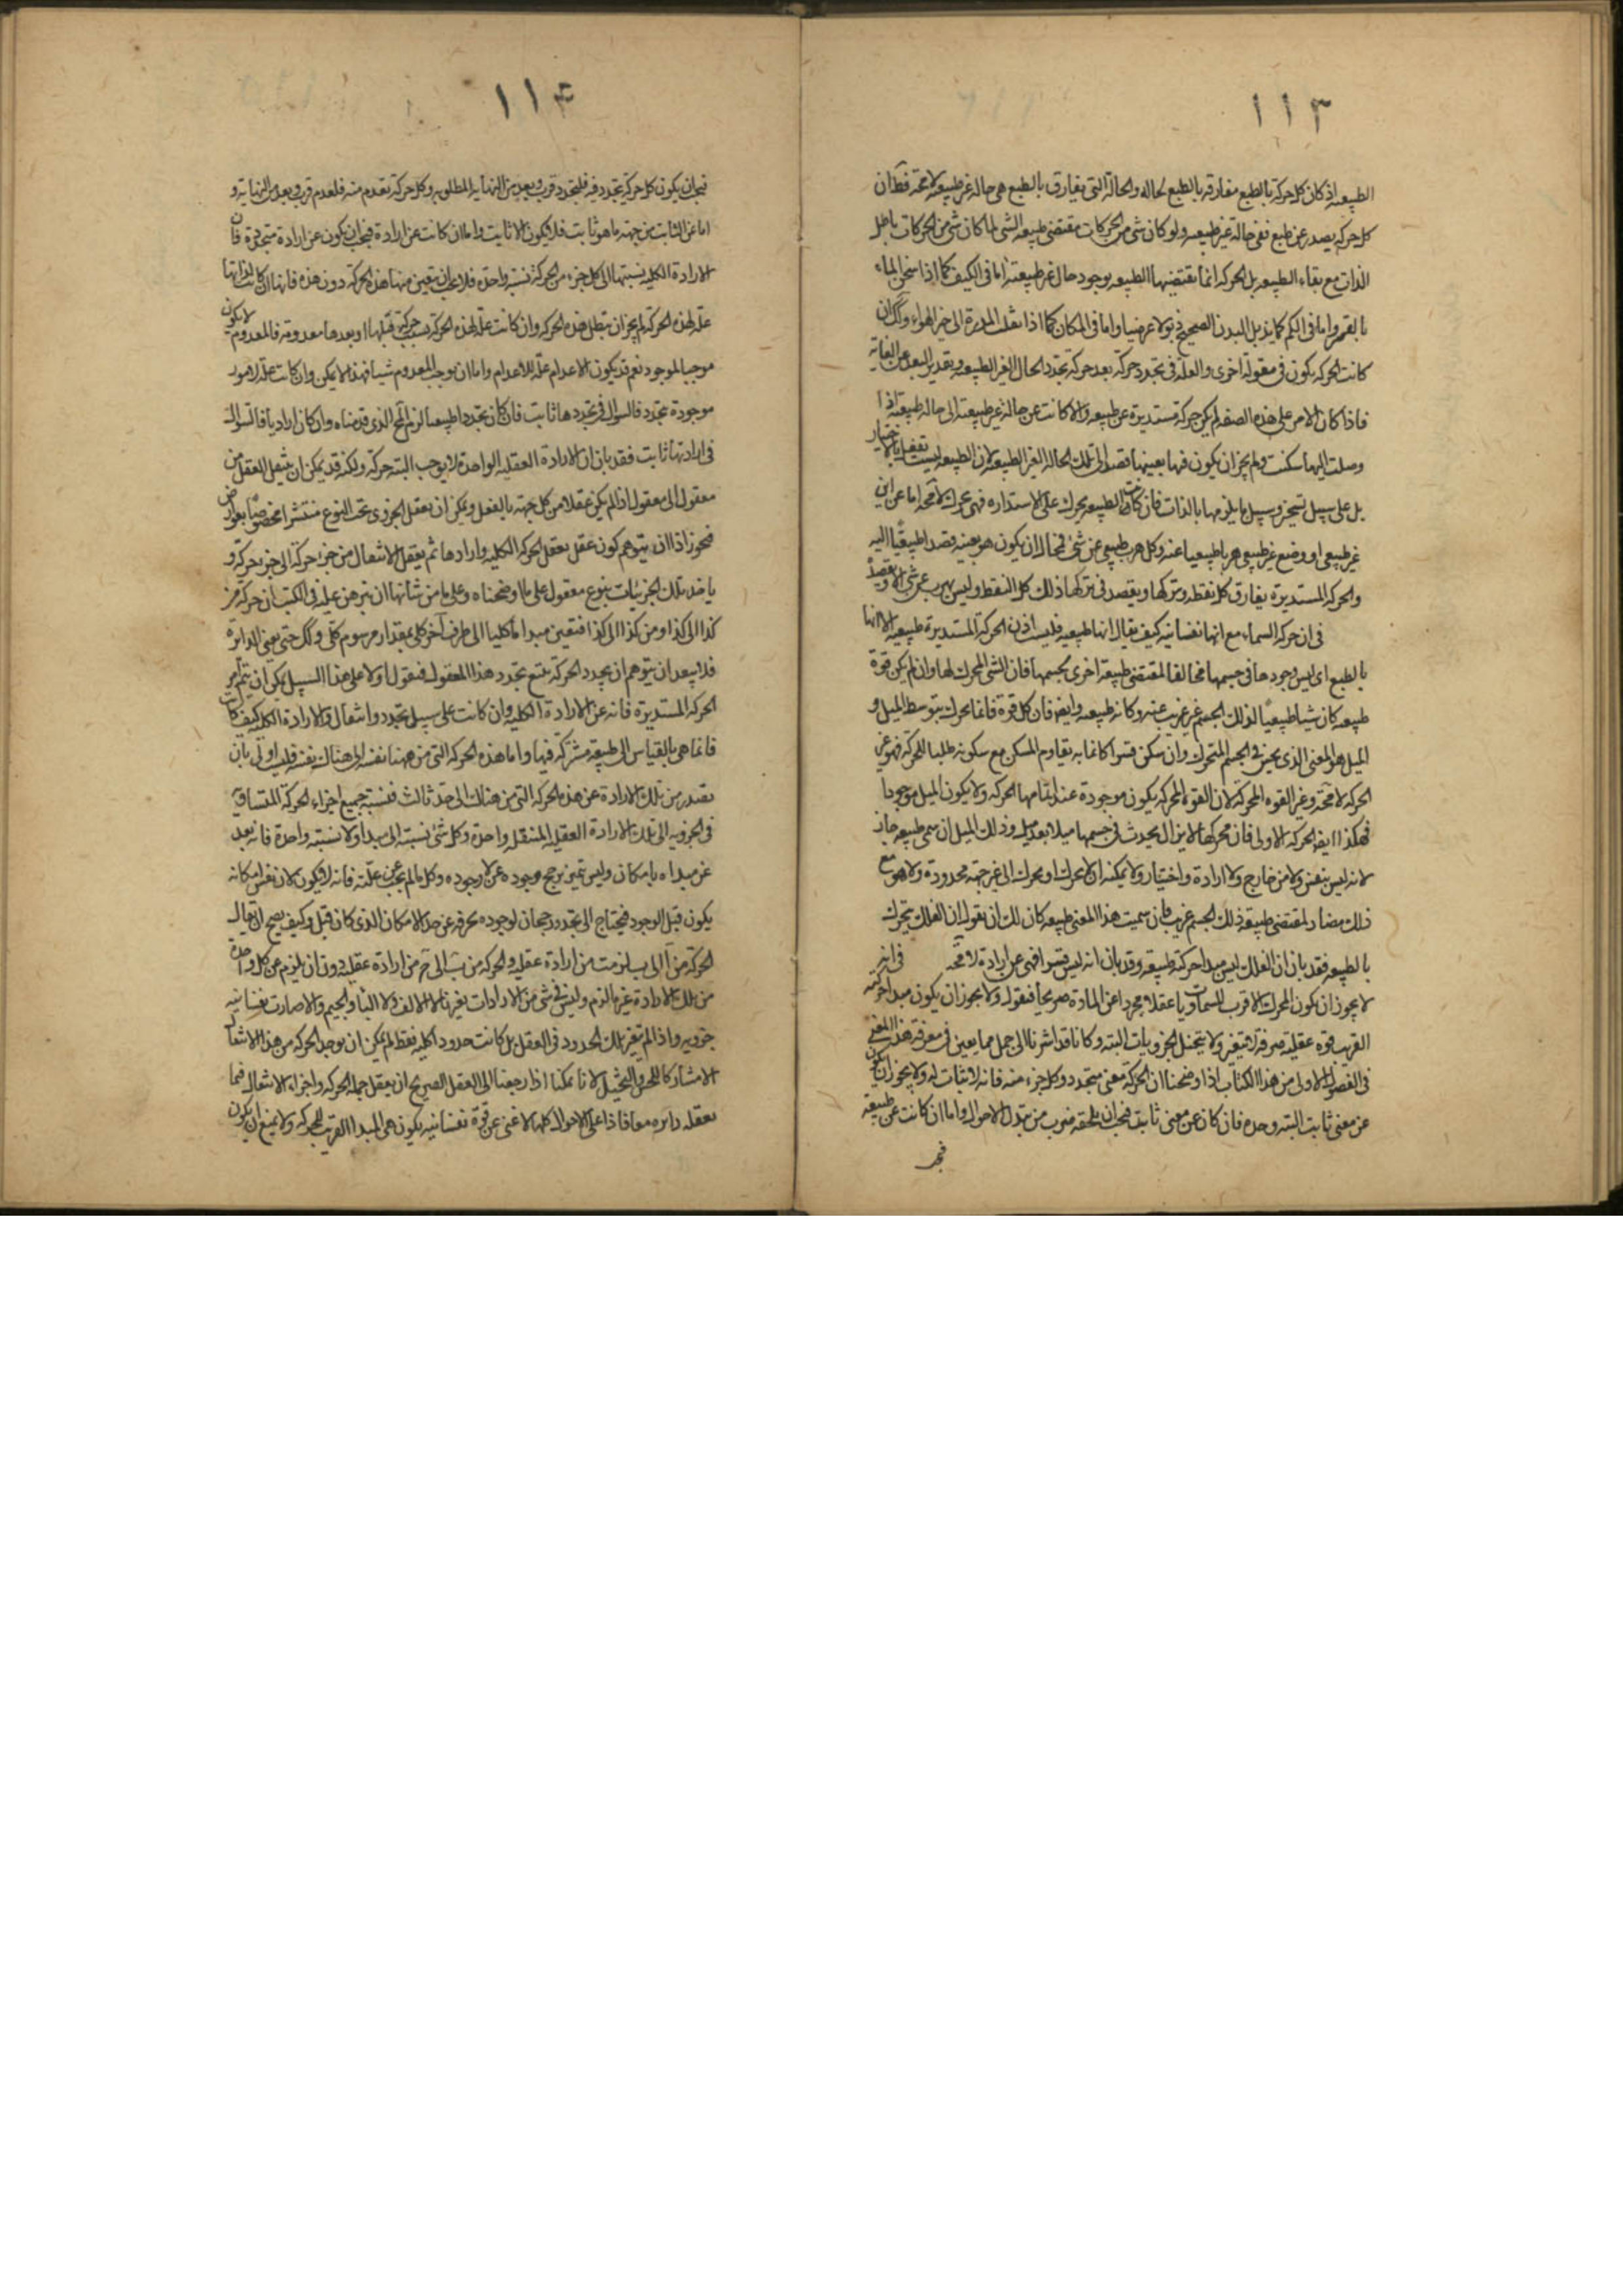 ١١٣
الطبيعه اذ كان كل حركة بالطبع مفارقه بالطبع لحاله والحالة التى يفارق بالطبع هى حاله غير طبيعيه لا محة فظ ان
كل حركه يصدر عن طبع ففى حالة غير طبيعيه ولو كان شى من الحركات مقتضى طبيعه الشى لما كان شى من الحركات باطل
الذات مع بقاء الطبيعه بل الحركه انما يقتضيها الطبيعه بوجود حال غير طبيعته اما فى الكيف كما اذا سخن الماء
بالقسر واما فى الكم كما يذبل البدن الصحيح ذبولا مرضيا واما فى المكان كما اذا نقلت المدرة الى حيز الهواء وكك ان
كانت الحركه يكون فى مقولة اخرى والعلة فى تجدد حركة بعد حركة تجدد الحال الغير الطبيعيه وتقدير البعد عن الغاية
فاذا كان الامر على هذه الصفه لم يكن حركة مستديرة عن طبيعه والا كانت عن حالة غير طبيعية الى حاله طبيعية اذا
وصلت اليها سكنت ولم يجز ان يكون فيها بعينها قصد الى تلك الحالة الغير الطبيعيه لان الطبيعه ليست تفعل بالاختيار
بل على سبيل تسخير وسبيل ما يلزمها بالذات فان كانت الطبيعه تحرك على الاستداره فهى تحرك لا محة اما عن اين
غير طبيعى او وضع غير طبيعى هربا طبيعيا عنه وكل هرب طبيعى عن شئ فمحال ان يكون هو بعينه قصدا طبيعيا اليه
والحركه المستديرة يفارق كل نقطه وتتركها ويقصد فى تركها ذلك كل النقط وليس يهرب عن شئ الا ويقصده
فى ان حركه السماء مع انها نفسانيه كيف يقال انها طبيعيه فليست اذن الحركة المستديرة طبيعيه الا انها
بالطبع اى ليس وجودها فى جسمها مخالفا لمقتضى طبيعة اخرى لجسمها فان الشى المحرك لها وان لم يكن قوة
طبيعيه كان شيا طبيعيا لذلك الجسم غير غريب عنه وكانه طبيعته وايضا فان كل قوة فانما يحرك بتوسط الميل و
الميل هو المعنى الذى يحس فى الجسم المتحرك وان سكن قسرا كانما به يقاوم المسكن مع سكونه طلبا للحركة فهو غير
الحركه لا محة وغير القوه المحركة لان القوة المحركه يكون موجودة عند اتمامها الحركه ولا يكون الميل موجودا
فهكذا ايضا الحركه الاولى فان محركها لا يزال يحدث فى جسمها ميلا بعد ميل وذلك الميل ان سمى طبيعه جاز
لانه ليس بنفس ولا من خارج ولا ارادة واختيار ولا يمكنه ان لا يحرك او يحرك الى غير جهة محدودة ولا هو مع
ذلك مضاد لمقتضى طبيعة ذلك الجسم غريب فان سميت هذا المعنى طبيعه كان لك ان تقول ان الفلك يتحرك
بالطبيعه فقد بان ان الفلك ليس مبدأ حركته طبيعيه وقد بان انه ليس قسرا فهى عن ارادة لا محة فى انه
لا يجوز ان يكون المحرك الاقرب للسماويات عقلا مجردا عن المادة صريحا فنقول ولا يجوز ان يكون مبدأ حركته
القريب قوه عقليه صرفة لا تتغير ولا يتخيل الجزويات البته وكانا قد اشرنا الى جمل مما يعين فى معرفة هذا المعنى
فى الفصول الاولى من هذا الكتاب اذ اوضحنا ان الحركة معنى متجدد وكل جزء منه فانه لا ثبات له ولا يجوز ان يكون
عن معنى ثابت البته وحده فان كان عن معنى ثابت فيجب ان يلحقه ضروب من تبدل الاحوال واما ان كانت عن طبيعة
فيجب
١١٤
فيجب ان يكون كل حركة يتجدد فيه فلتجدد قرب وبعد من النهاية المطلوبه وكل حركة تعدم منه فلعدم قرب وبعد من النهاية و
اما عن الثابت من جهة ما هو ثابت فلا يكون الا ثابت واما ان كانت عن ارادة فيجب ان يكون عن ارادة متجددة فان
الارادة الكليه نسبتها الى كل جزء من الحركة نسبة واحدة فلا يجب ان يتعين منها هذه الحركة دون هذه فانها ان كانت لذاتها
علة لهذه الحركة لم يجز ان تبطل هذه الحركه وان كانت علة لهذه الحركة بسبب حركة قبلها او بعدها معدومة فالمعدوم لا يكون
موجبا لموجود نعم قد يكون الاعدام علة للاعدام واما ان يوجب المعدوم شيئا فهذا لا يمكن وان كانت علة لامور
موجودة تتجدد فالسوال فى تجددها ثابت فان كان تجددا طبيعيا لزم المح الذى قدمناه وان كان اراديا فالسوال
فى ارادتها ثابت فقد بان ان الارادة العقليه الواحدة لا يوجب البته حركة ولكنه قد يمكن ان ينتقل العقل من
معقول الى معقول اذا لم يكن عقلا من كل جهة بالفعل ويمكن ان يعقل الجزوى تحت النوع منتشرا مخصوصا بعوارض
فجوز اذا ان يتوهم كون عقل يعقل الحركه الكليه وارادها ثم يعقل الانتقال من جزء حركة الى جزء حركة و
ياخذ تلك الجزئيات بنوع معقول على ما اوضحناه وعلى ما من شأننا ان نبرهن عليه فى الكتب ان حركة من
كذا الى كذا ومن كذا الى كذا فتعين مبدأ ما كليا الى طرف آخر كلى بمقدار مرسوم كلى وكك حتى يفنى الدايرة
فلا يبعد ان يتوهم ان تجدد الحركة يتبع تجدد هذا المعقول فنقول اولا على هذا السبيل يمكن ان يتم امر
الحركه المستديرة فانه عن الارادة الكليه وان كانت على سبيل تجدد وانتقال والارادة الكليه كيف كانت
فانما هى بالقياس الى طبيعة مشتركة فيها واما هذه الحركه التى من ههنا نفسه الى هناك نفسه فليست اولى بان
تصدر من تلك الارادة عن هذه الحركه التى من هناك الى حد ثالث فنسبة جميع اجزاء الحركة المتساوية
فى الجزويه الى تلك الارادة العقليه المنتقل واحدة وكل شئ نسبته الى مبدأ ولا نسبته واحدة فانه بعد
عن مبداه بامكان وليس تميز ترجح وجوده عن لا وجوده وكل ما لم يجب عن علته فانه لا يكون لان نفس امكانه
يكون قبل الوجود فيحتاج الى تجدد رجحان لوجوده يخرجه عن حد الامكان الذى كان قبل وكيف يصح ان يقال
الحركة من آ الى ب لزمت من ارادة عقليه والحركه من ب الى ج من ارادة عقليه دون ان يلزم عن كل واحدة
من تلك الارادة غير ما لزم وليس فى شئ من الارادات بغيرها الا الالف ولا الباء والجيم والا صارت نفسانيه
جزويه واذا لم يتغير تلك الحدود فى العقل بل كانت حدودا كليه فقط لم يمكن ان يوجد الحركه من هذا الانتقال
الا مشاركا للحس والتخيل لانا يمكننا اذا رجعنا الى العقل الصريح ان يعقل جمله الحركه واجزاء الانتقال فيما
تعقله دايره معا فاذا على الاحوال كلها لا غنى عن قوة نفسانيه يكون هى المبدأ القريب للحركه ولا يمنع ان يكون